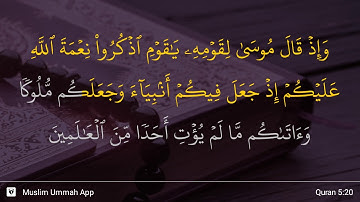 وَإِذْ قَالَ مُوسَىٰ لِقَوْمِهِۦ يَـٰقَوْمِ ٱذْكُرُوا۟ نِعْمَةَ ٱللَّهِ
عَلَيْكُمْ إِذْ جَعَلَ فِيكُمْ أَنۢبِيَآءَ وَجَعَلَكُم مُّلُوكًا
وَءَاتَىٰكُم مَّا لَمْ يُؤْتِ أَحَدًا مِّنَ ٱلْعَـٰلَمِينَ
Muslim Ummah App
Quran 5:20